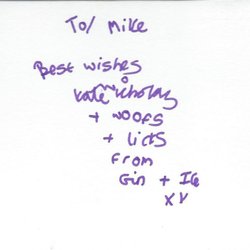 To/ Mike
Best wishes
Kate Nicholas
+ woofs
+ licks
From
Gin +
xx